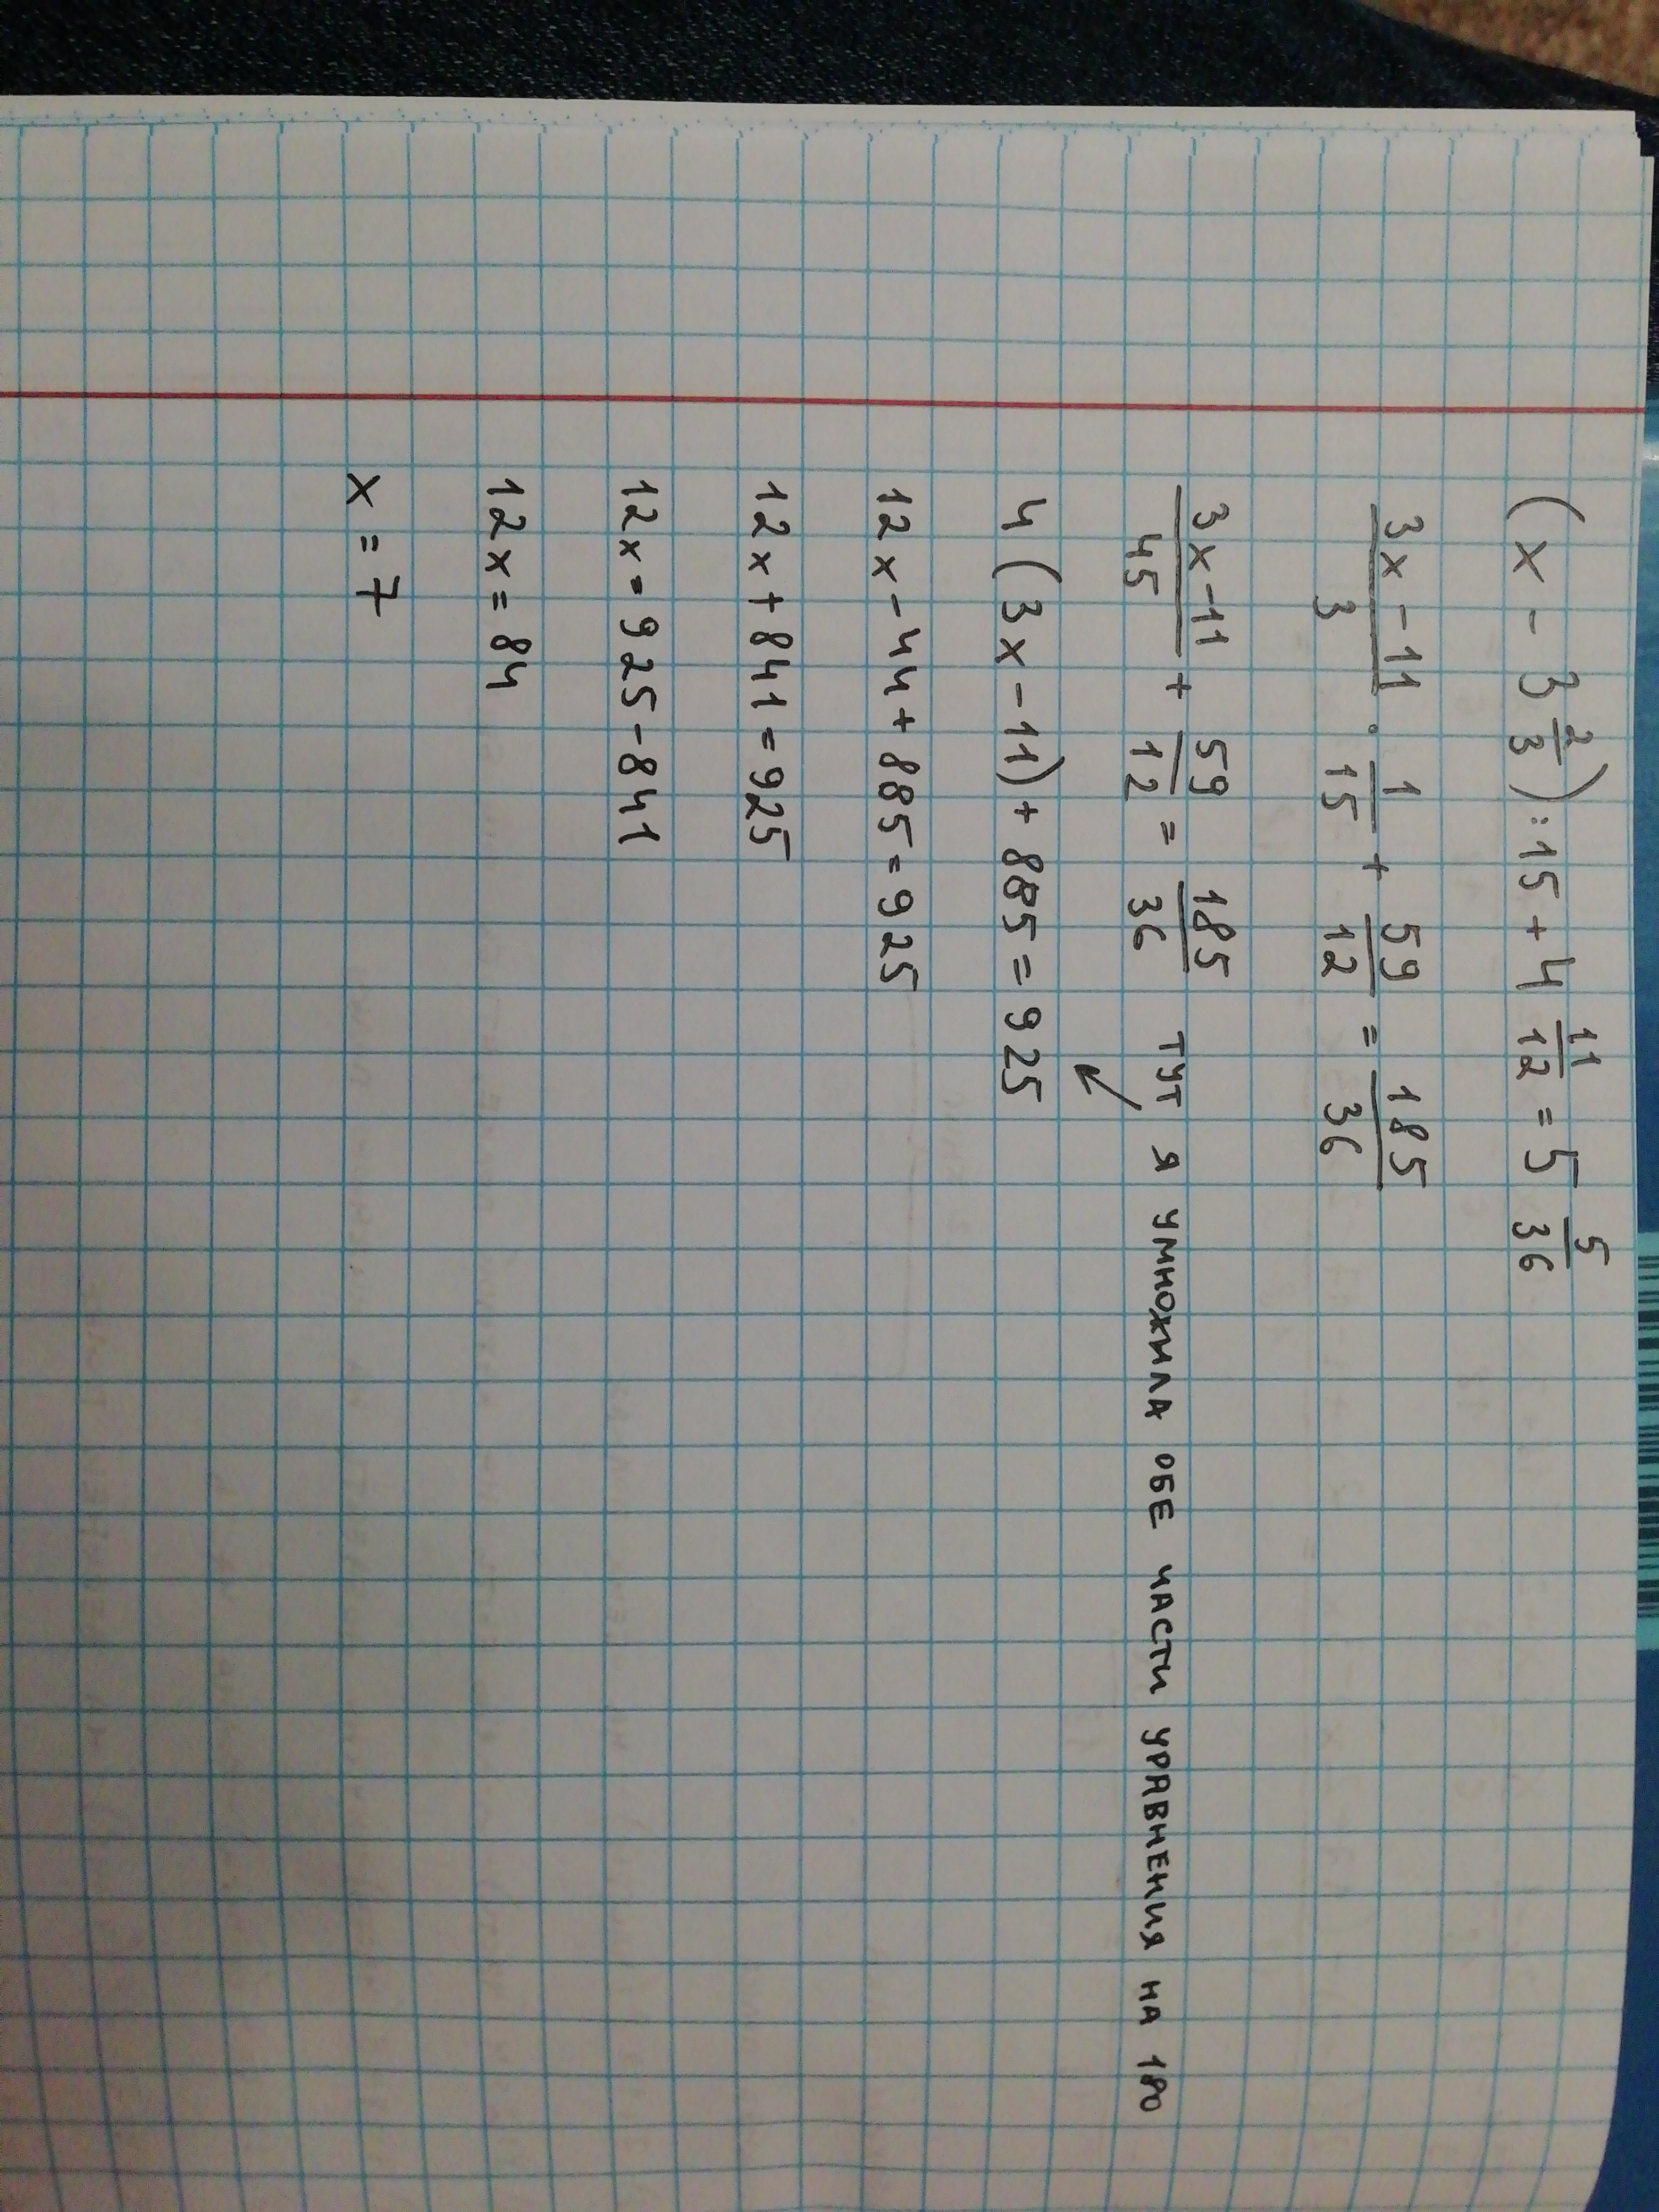 (x - 3 2/3) : 15 + 4 11/12 = 5 5/36
3x - 11/3 · 1/15 + 59/12 = 185/36
3x - 11/45 + 59/12 = 185/36 ТУТ Я УМНОЖИЛА ОБЕ ЧАСТИ УРАВНЕНИЯ НА 180
4 (3x - 11) + 885 = 925 ↙
12x - 44 + 885 = 925
12x + 841 = 925
12x = 925 - 841
12x = 84
x = 7